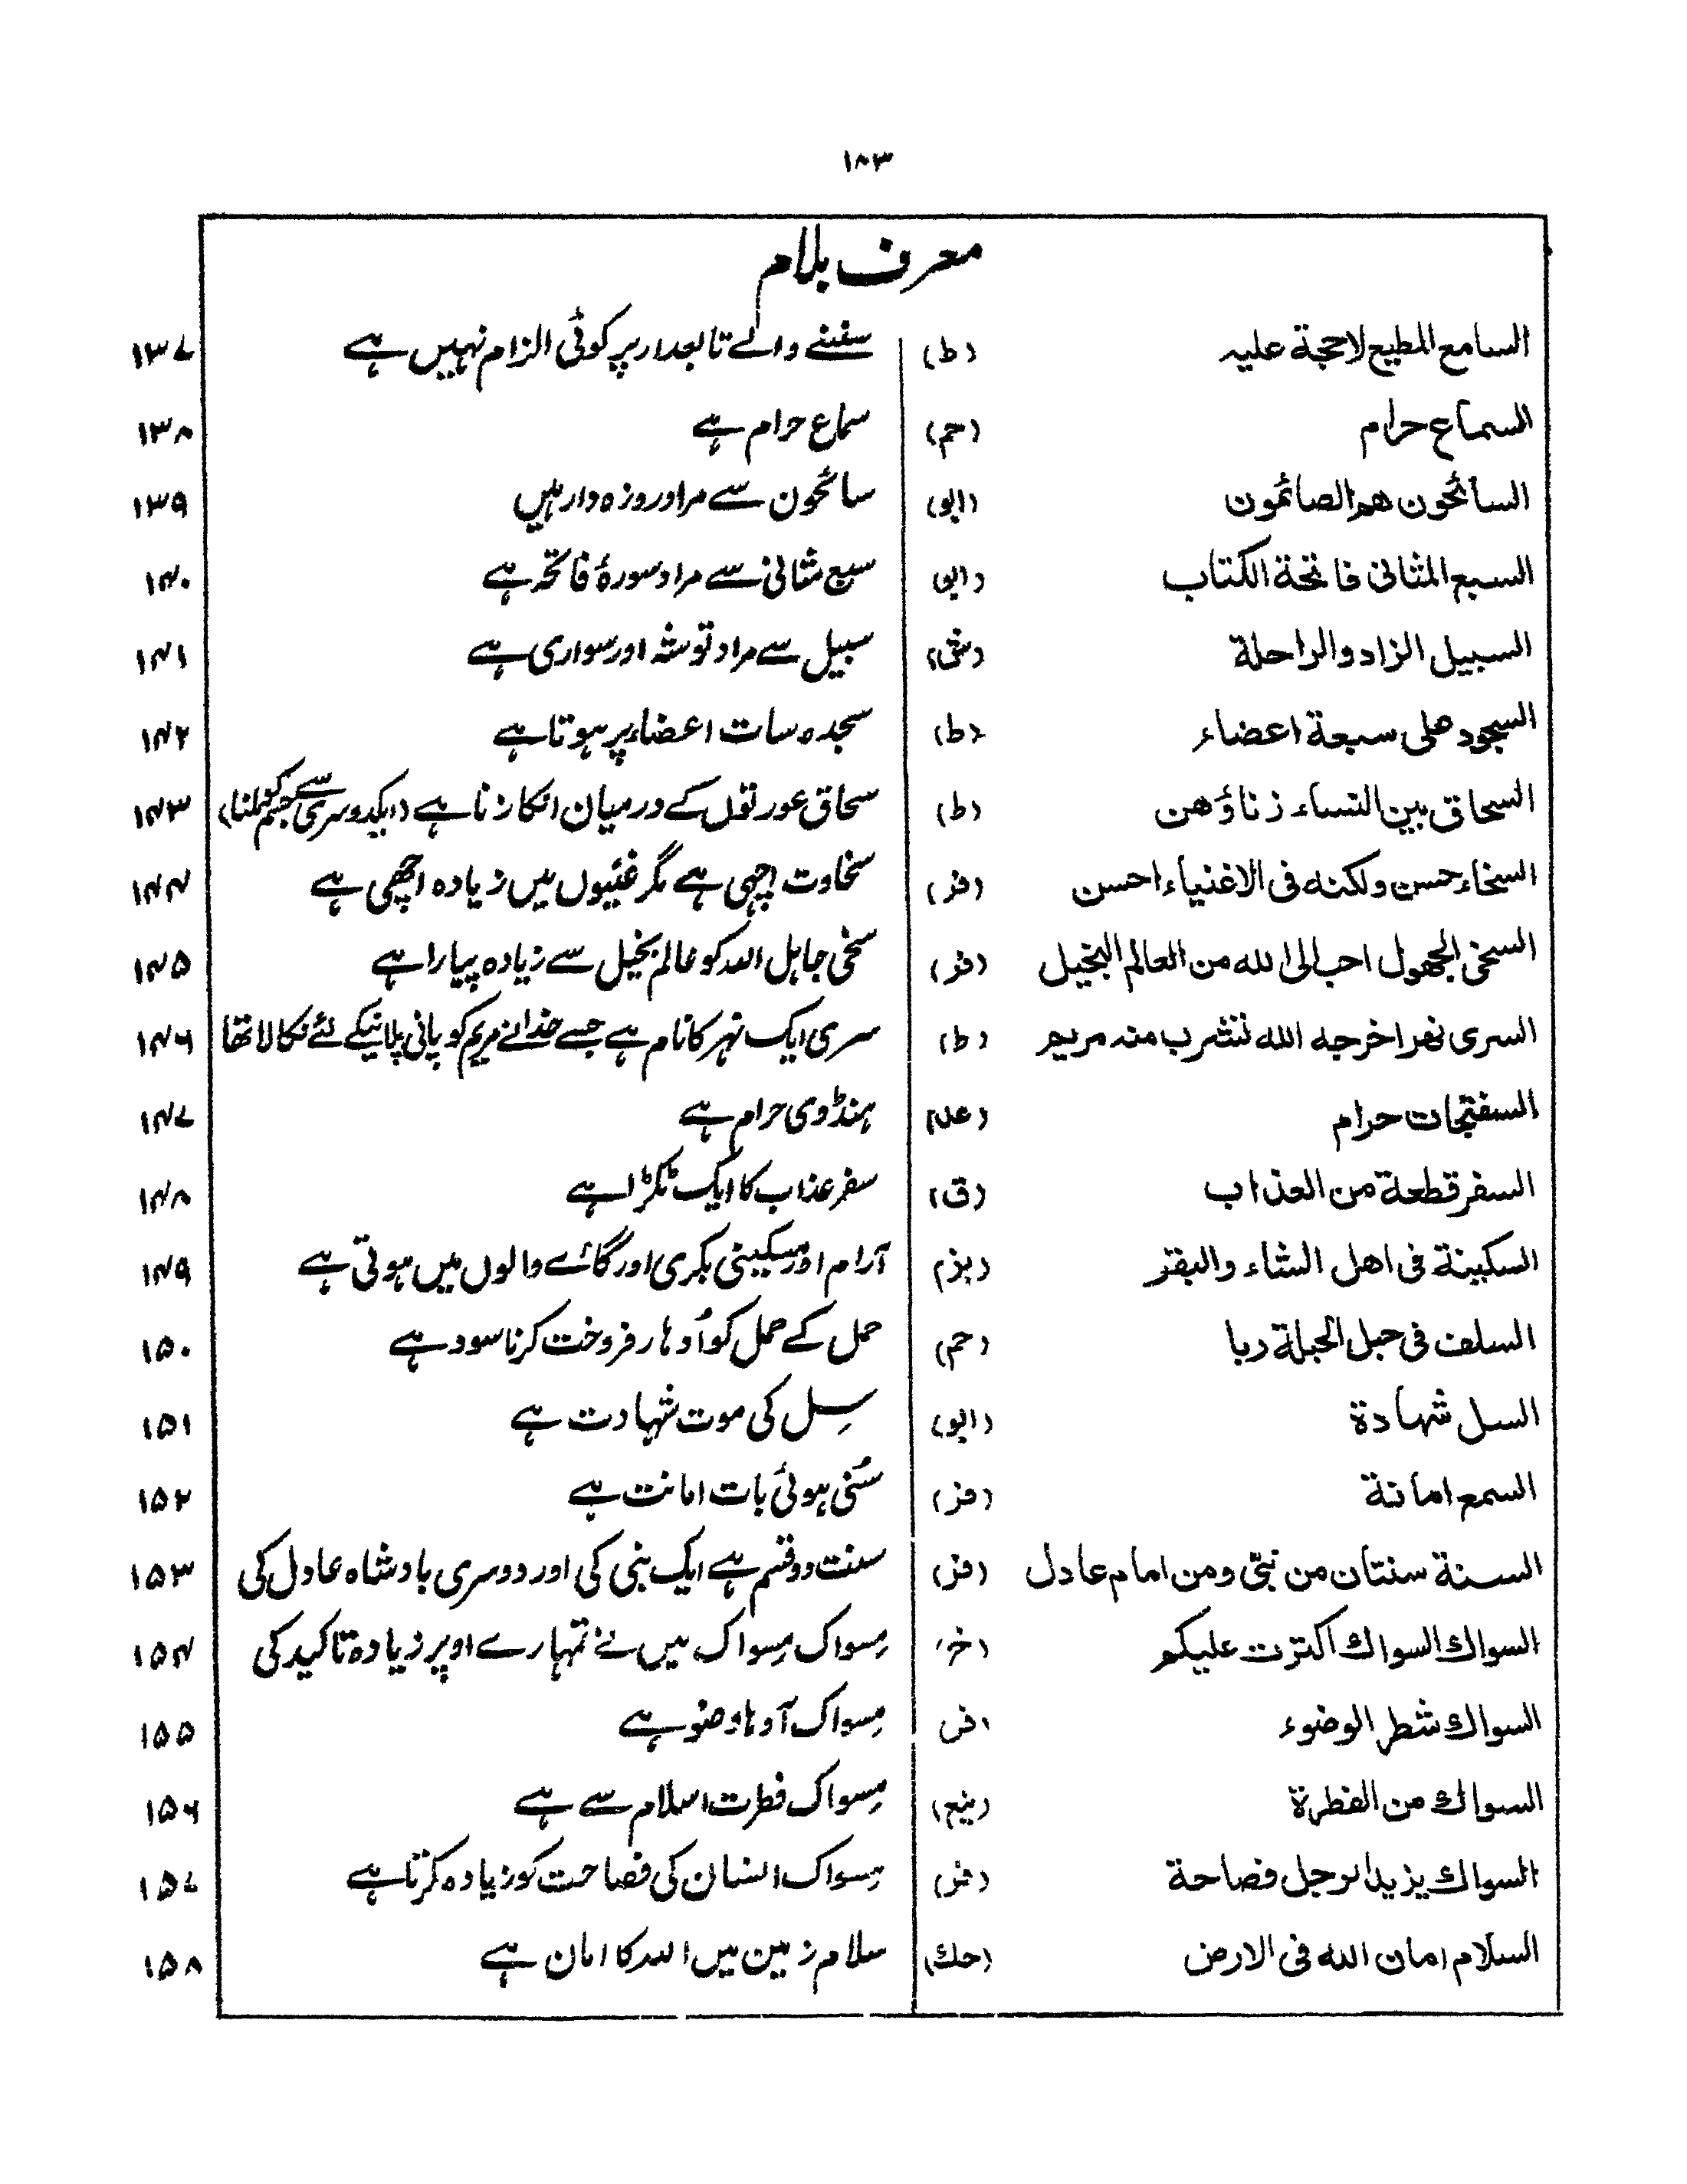 ۱۸۳
معرف بلام
السامع المطیع لاحجة علیہ (ط) سننے والے تابعدار پر کوئی الزام نہیں ہے ۱۳۷
السماع حرام (حم) سماع حرام ہے ۱۳۸
السائحون هم الصائمون (ابو) سائحون سے مراد روزہ دار ہیں ۱۳۹
السبع المثانی فاتحة الکتاب (ابو) سبع مثانی سے مراد سورۂ فاتحہ ہے ۱۴۰
السبیل الزاد والراحلة (ش) سبیل سے مراد توشہ اور سواری ہے ۱۴۱
السجود علی سبعة اعضاء (ط) سجدہ سات اعضاء پر ہوتا ہے ۱۴۲
السحاق بین النساء زناؤهن (ط) سحاق عورتوں کے درمیان انکا زنا ہے (ایکدوسری سے جسم کو ملنا) ۱۴۳
السخاء حسن ولکنه فی الاغنیاء احسن (فر) سخاوت اچھی ہے مگر غنیوں میں زیادہ اچھی ہے ۱۴۴
السخی الجهول احب الی الله من العالم البخیل (فر) سخی جاہل اللہ کو عالم بخیل سے زیادہ پیارا ہے ۱۴۵
السری نهر اخرجه الله لتشرب منه مریم (ط) سری ایک نہر کا نام ہے جسے خدا نے مریم کو پانی پلانیکے لئے نکالا تھا ۱۴۶
السفتجات حرام (عد) ہنڈوی حرام ہے ۱۴۷
السفر قطعة من العذاب (ق) سفر عذاب کا ایک ٹکڑا ہے ۱۴۸
السکینة فی اهل الشاء والبقر (بز) آرام اور مسکینی بکری اور گائے والوں میں ہوتی ہے ۱۴۹
السلف فی حبل الحبلة ربا (حم) حمل کے حمل کو اُدہار فروخت کرنا سود ہے ۱۵۰
السل شهادة (ابو) سِل کی موت شہادت ہے ۱۵۱
السمع امانة (فر) سُنی ہوئی بات امانت ہے ۱۵۲
السنة سنتان من نبیّ ومن امام عادل (فر) سنت دو قسم ہے ایک نبی کی اور دوسری بادشاہ عادل کی ۱۵۳
السواك السواك اکثرت علیکم (خ) مِسواک مِسواک میں نے تمہارے اوپر زیادہ تاکید کی ۱۵۴
السواك شطر الوضوء (فر) مِسواک آدہا وضو ہے ۱۵۵
السواك من الفطرة (نع) مِسواک فطرت اسلام سے ہے ۱۵۶
السواك یزید الرجل فصاحة (فر) مِسواک انسان کی فصاحت کو زیادہ کرتا ہے ۱۵۷
السلام امان الله فی الارض (حك) سلام زمین میں اللہ کا امان ہے ۱۵۸